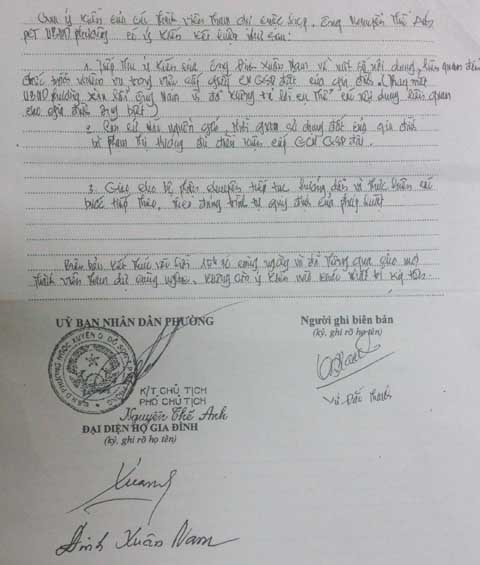 Qua ý kiến của các thành viên tham dự cuộc họp. Ông Nguyễn Thế Anh
PCT UBND phường có ý kiến kết luận như sau:
1. Tiếp thu ý kiến của Ông Đinh Xuân Nam về một số nội dung liên quan đến
trong việc cấp giấy CNQSD đất của gia đình. Thay mặt
UBND phường xin lỗi Ông Nam vì đã không trả lời cụ thể các nội dung liên quan
cho gia đình ông biết
2. Căn cứ vào nguồn gốc, thời gian sử dụng đất của gia đình
bà Phạm Thị Hương đủ điều kiện cấp GCNQSD đất.
3. Giao cho bộ phận chuyên tiếp tục hướng dẫn và thực hiện các
bước tiếp theo, theo đúng trình tự quy định của pháp luật
Biên bản kết thúc vào hồi cùng ngày và đã thông qua cho mọi
thành viên tham dự cùng nghe, không còn ý kiến nào khác nhất trí ký tên.
UỶ BAN NHÂN DÂN PHƯỜNG
Người ghi biên bản
(ký, ghi rõ họ tên)
K/T CHỦ TỊCH
PHÓ CHỦ TỊCH
Nguyễn Thế Anh
Vũ Đức Thanh
ĐẠI DIỆN HỘ GIA ĐÌNH
(ký, ghi rõ họ tên)
Đinh Xuân Nam